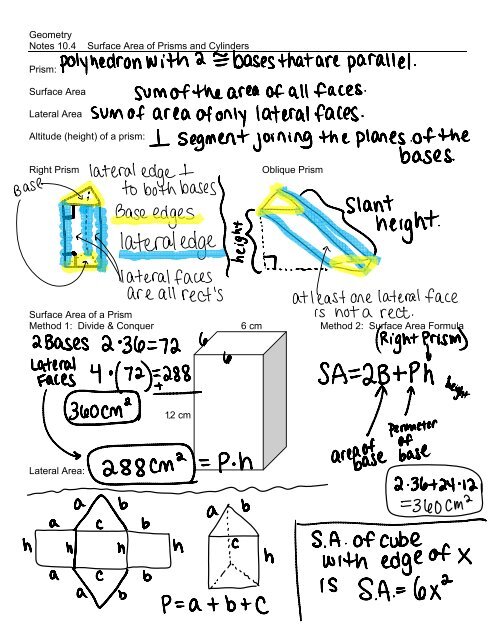 Geometry
Notes 10.4 Surface Area of Prisms and Cylinders
Prism: polyhedron with 2 ≅ bases that are parallel.
Surface Area sum of the area of all faces.
Lateral Area sum of area of only lateral faces.
Altitude (height) of a prism: ⊥ segment joining the planes of the
bases.
Right Prism lateral edge ⊥
to both bases
Base
Base edges
lateral edge
lateral faces
are all rect's
Oblique Prism
height
Slant
height.
at least one lateral face
is not a rect.
Surface Area of a Prism
Method 1: Divide & Conquer
2 Bases 2·36=72
Lateral
Faces 4·(72)=288
+
360cm²
6 cm
6
6
12 cm
Lateral Area: 288cm² = P·h
Method 2: Surface Area Formula
(Right Prism)
SA=2B+Ph
height
area of
base
Perimeter
of
base
2·36+24·12
=360cm²
a b
a c b
h h h
a c b
a b
a b
c
h
P=a+b+c
S.A. of cube
with edge of x
is S.A.=6x²